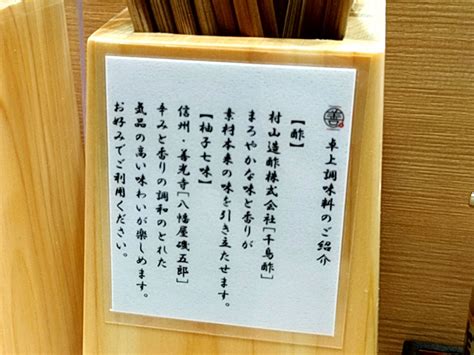 善
卓上調味料のご紹介
【酢】
村山造酢株式会社［千鳥酢］
まろやかな味と香りが
素材本来の味を引き立たせます。
【柚子七味】
信州・善光寺［八幡屋礒五郎］
辛みと香りの調和のとれた
気品の高い味わいが楽しめます。
お好みでご利用ください。